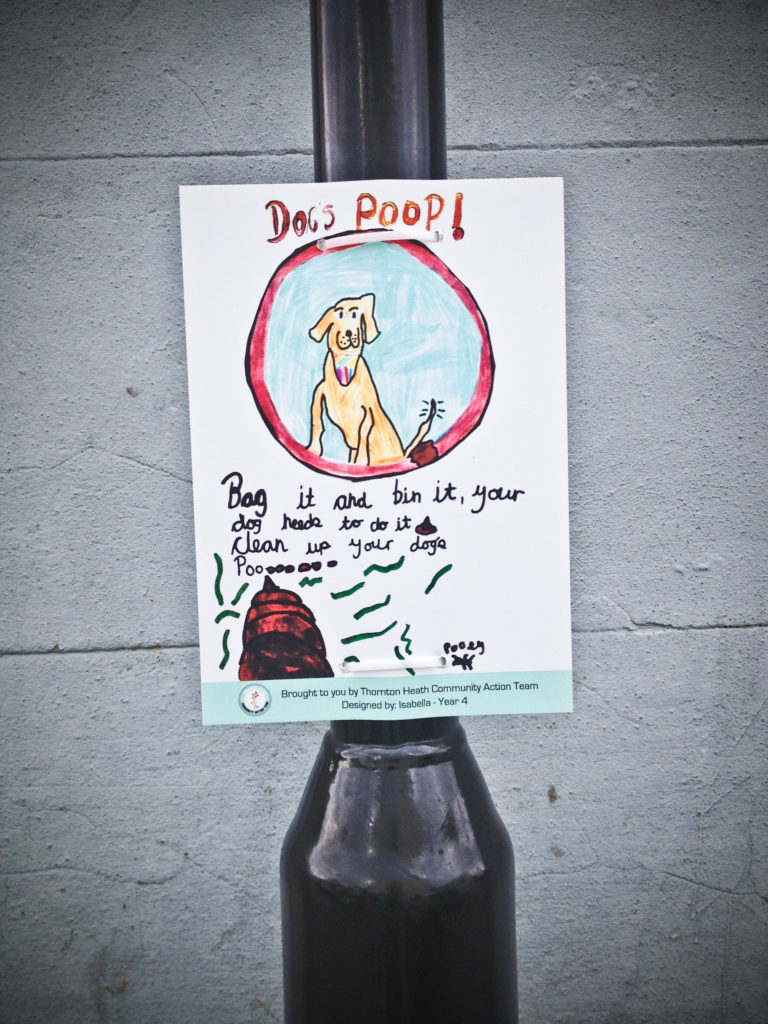 Dog's POOP!
Bag it and bin it, your
dog needs to do it
clean up your dogs
Poo
Pooey
Brought to you by Thornton Heath Community Action Team
Designed by: Isabella - Year 4